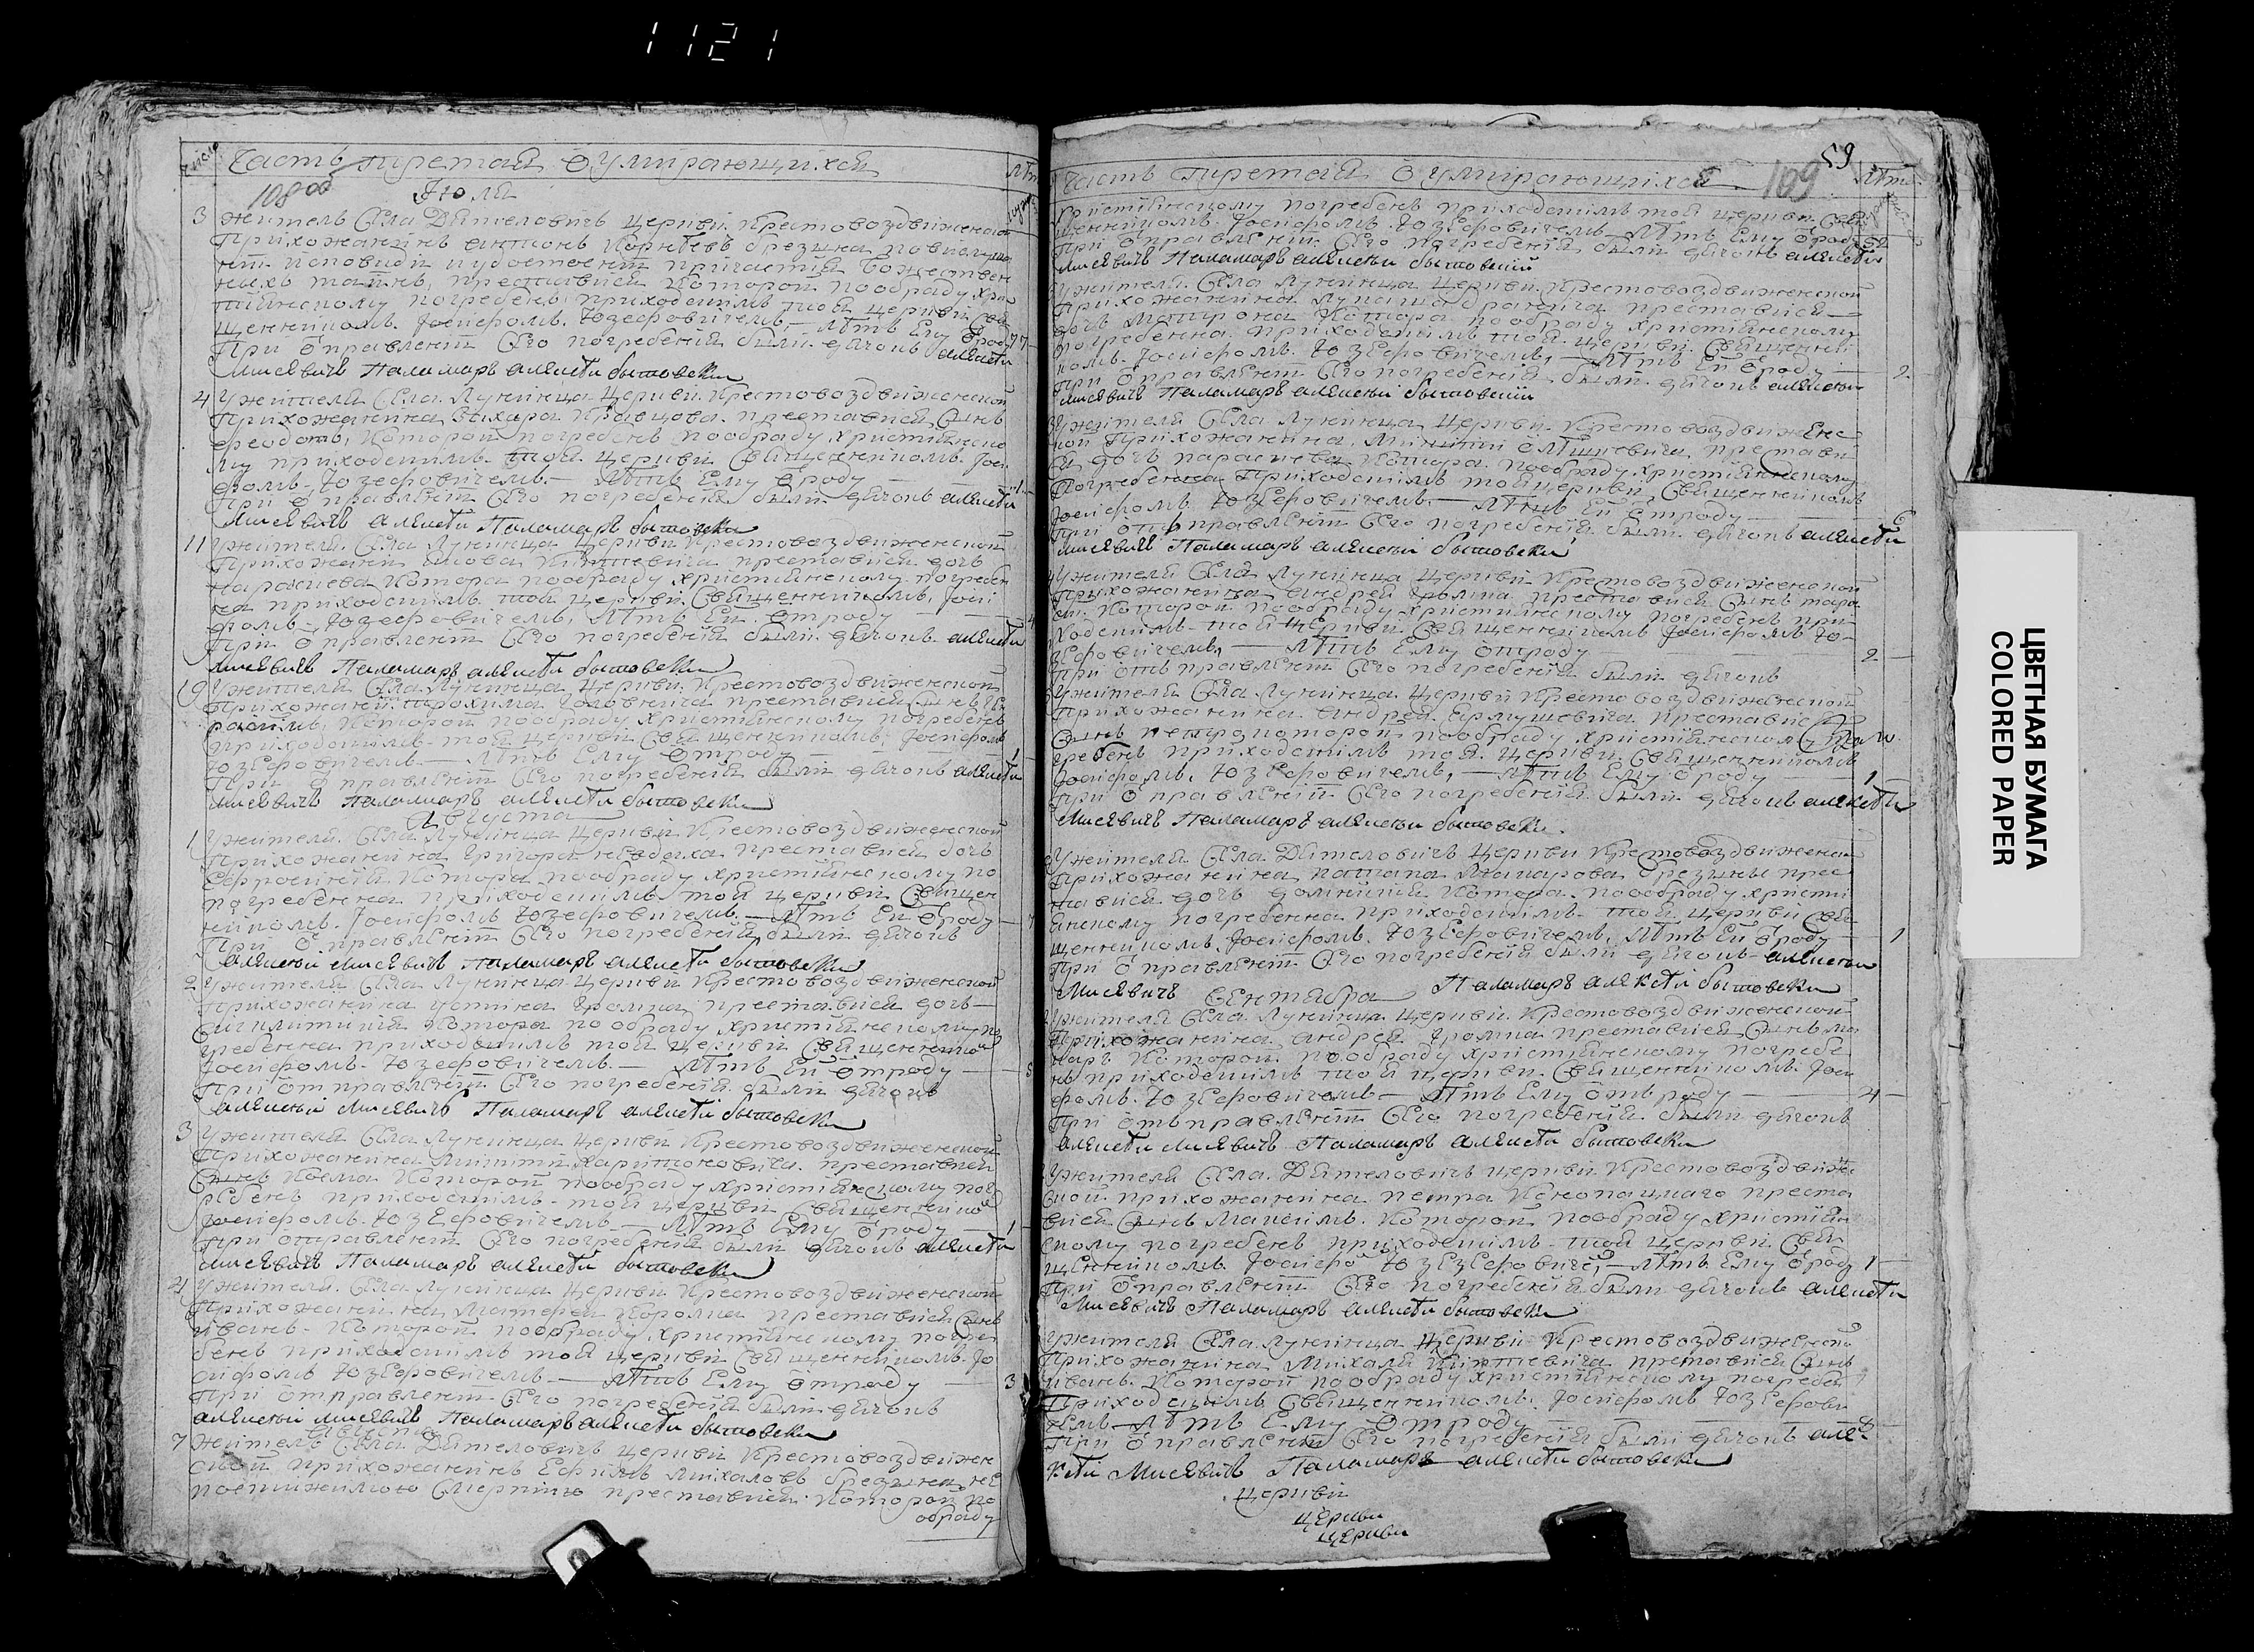 1121
Число
Часть третая о умирающихся
Лѣт
108 об
Июля
3 житель Села Дятеловичъ церкви Крестовоздвиженской
Прихожанинъ антонъ Корнѣевъ брезина по
исповиди и удостоенїи причастия Божествен
ныхъ таинъ, преставися которой пообряду хри
стиянскому погребенъ приходскимъ той церкви свя
щенникомъ Іосифомъ Юзефовичемъ — лѣтъ Ему ѿроду 77
При ѿправленїи Сего погребения были дячокъ алексѣи
Мисевичъ Паламаръ алексѣи бытовски
4 Ужителя Села Лунинца Церкви Крестовоздвиженской
Прихожанина Захара Кравцова преставися Сынъ
феодотъ, которой погребенъ пообряду християнско
му приходскимъ той церкви Священникомъ Іоси
фомъ Юзефовичемъ — лѣтъ Ему ѿроду 1
При ѿправленїи Сего погребения были дячокъ алексѣи
Мисевичъ алексѣи Паламаръ бытовски
11 Ужителя Села Лунинца церкви Крестовоздвиженской
преставися дочь
Параскева котора пообряду християнскому погребен
на приходскимъ той церкви Священникомъ Іоси
фомъ Юзефовичемъ, лѣтъ Еи ѿтроду 4
При ѿправленїи Сего погребения были дячокъ алексѣи
Мисевичъ Паламаръ алексѣи бытовски
19 Ужителя Села Лунинца Церкви Крестовоздвиженской
Прихожанина трохима Головнича преставися Сынъ
которой пообряду християнскому погребенъ
приходскимъ той церкви Священникомъ Іосифомъ
Юзефовичемъ — лѣтъ Ему ѿтроду 1
При ѿправленїи Сего погребения были дячокъ алексѣи
Мисевичъ Паламаръ алексѣи бытовски
Августа
1 Ужителя Села Лунинца церкви Крестовоздвиженской
Прихожанина Григора преставися дочь
Ефросиния котора пообряду християнскому по
погребенна приходскимъ той церкви Священ
никомъ Іосифомъ Юзефовичемъ — лѣтъ Еи ѿроду 7
При ѿправленїи Сего погребения были дячокъ
алексѣи Мисевичъ Паламаръ алексѣи бытовски
2 Ужителя Села Лунинца церкви Крестовоздвиженской
Прихожанина Громца преставися дочь
котора пообряду християнскому по
гребенна приходскимъ той церкви Священнико
Іосифомъ Юзефовичемъ — лѣтъ Еи ѿтроду
При ѿтправленїи Сего погребения были дячокъ
алексѣи Мисевичъ Паламаръ алексѣи бытовски
3 Ужителя Села Лунинца церкви Крестовоздвиженской
Прихожанина Микити Харитоновича преставися
Сынъ Косма которой пообряду християнскому пог
ребенъ приходскимъ той церкви Священнико
Іосифомъ Юзефовичемъ — лѣтъ Ему ѿроду 1
При отправленїи Сего погребения были дячокъ алексѣи
Мисевичъ Паламаръ алексѣи бытовски
4 Ужителя Села Лунинца церкви Крестовоздвиженской
Прихожанина Матфея Королца преставися Сынъ
иванъ которой пообряду християнскому погре
бенъ приходскимъ той церкви Священникомъ Іо
сифомъ Юзефовичемъ — лѣтъ Ему ѿтроду 3
При отправленїи Сего погребения были дячокъ
алексѣи мисевичъ Паламаръ алексѣи бытовски
7 житель Села Дятеловичъ церкви Крестовоздвижен
ской прихожанинъ Ефимъ Михаловъ брезина не
смертию преставися которой по
обряду
59
Часть третая о умирающихся 109
Лѣт
християнскому погребенъ приходскимъ той церкви Свя
щенникомъ Іосифомъ Юзефовичемъ лѣтъ Ему ѿроду
При ѿправленїи Сего погребения были дячокъ алексѣи
Мисевичъ Паламаръ алексѣи бытовский
Ужителя Села Лунинца церкви Крестовоздвиженской
Прихожанина преставися
дочь Матрона котора пообряду християнскому
погребенна приходскимъ той церкви Священни
комъ Іосифомъ Юзефовичемъ, — лѣтъ Еи ѿроду 2
При ѿправленїи Сего погребения были дячокъ алексѣи
Мисевичъ Паламаръ алексѣи бытовский
Ужителя Села Лунинца церкви Крестовоздвиженс
кой Прихожанина Микити преставися
дочь параскева котора пообряду християнскому
погребенна Приходскимъ той церкви Священникомъ
Іосифомъ Юзефовичемъ — лѣтъ Еи ѿтроду 6
При отправленїи Сего погребения были дячокъ алексѣи
Мисевичъ Паламаръ алексѣи бытовски
Ужителя Села Лунинца церкви Крестовоздвиженской
Прихожанина Андрея Громца преставися Сынъ
которой пообряду християнскому погребенъ при
ходскимъ той церкви Священникомъ Іосифомъ Ю
зефовичемъ, — лѣтъ Ему ѿтроду 2
При отправленїи Сего погребения были дячокъ
Ужителя Села Лунинца церкви Крестовоздвиженской
Прихожанина Андрея Ярмушевича преставися
Сынъ петро которой пообряду християнскому по
гребенъ приходскимъ той церкви Священникомъ
Іосифомъ Юзефовичемъ, — лѣтъ Ему ѿроду 1
При ѿправленїи Сего погребения были дячокъ алексѣи
Мисевичъ Паламаръ алексѣи бытовски
Ужителя Села Дятеловичъ церкви Крестовоздвиженск
Прихожанина Макарова брезины прес
тавися дочь котора пообряду христи
янскому погребенна приходскимъ той церкви Свя
щенникомъ Іосифомъ Юзефовичемъ, лѣтъ Еи ѿроду 1
При ѿправленїи Сего погребения были дячокъ алексѣи
Мисевичъ Паламаръ алексѣи бытовски
Сентября
Ужителя Села Лунинца церкви Крестовоздвиженской
Прихожанина Андрея Громца преставися Сынъ ма
каръ которой пообряду християнскому погребе
нъ приходскимъ той церкви Священникомъ Іоси
фомъ Юзефовичемъ — лѣтъ Ему ѿтъ роду 4
При отправленїи Сего погребения были дячокъ
алексѣи мисевичъ Паламаръ алексѣи бытовски
Ужителя Села Дятеловичъ церкви Крестовоздвиже
ской прихожанина петра Конопацкаго преста
вися Сынъ Максимъ которой пообряду християн
скому погребенъ приходскимъ той церкви Свя
щенникомъ Іосифо Юзефовиче, — лѣтъ Ему ѿроду 1
При ѿправленїи Сего погребения были дячокъ алексѣи
Мисевичъ Паламаръ алексѣи бытовски
Ужителя Села Лунинца церкви Крестовоздвиженско
Прихожанина Михаля преставися Сынъ
иванъ которой пообряду християнскому погребен
Приходскимъ Священникомъ Іосифомъ Юзефови
чемъ — лѣтъ Ему ѿтроду
При ѿправленїи Сего погребения были дячокъ але
ксѣи Мисевичъ Паламаръ алексѣи бытовски
церкви
церкви
церкви
ЦВЕТНАЯ БУМАГА
COLORED PAPER